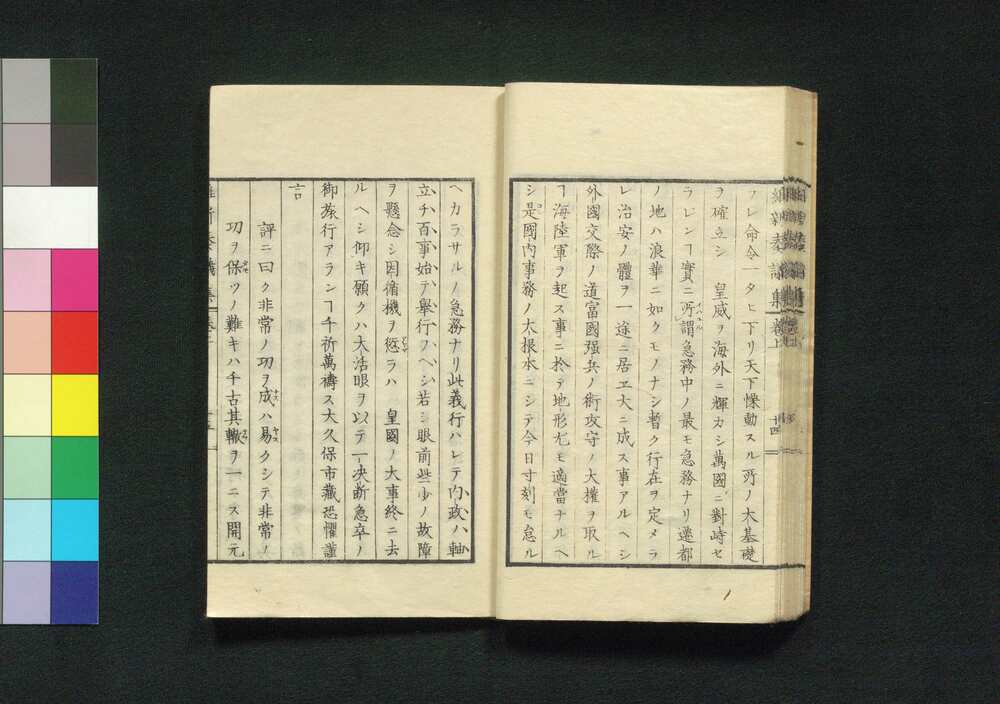 フレ命令一タヒ下リ天下悚動スル所ノ大基礎
ヲ確立シ　皇威ヲ海外ニ輝カシ萬國ニ對峙セ
ラレンヿ實ニ所謂急務中ノ最モ急務ナリ遷都
ノ地ハ浪華ニ如クモノナシ暫ク行在ヲ定メラ
レ治安ノ體ヲ一途ニ居ヱ大ニ成ス事アルヘシ
外國交際ノ道富國强兵ノ術攻守ノ大權ヲ取ル
ヿ海陸軍ヲ起ス事ニ於テ地形尤モ適當ナルヘ
シ是國內事務ノ大根本ニシテ今日寸刻モ怠ル
ヘカラサルノ急務ナリ此義行ハレテ內政ハ軸
立チ百事始テ舉行フヘシ若シ眼前些少ノ故障
ヲ懸念シ因循機ヲ愆ラハ　皇國ノ大事終ニ去
ルヘシ仰キ願クハ大活眼ヲ以テ一决斷急卒ノ
御旅行アランヿ千祈萬禱ス大久保市藏恐懼謹
言
評ニ曰ク非常ノ功ヲ成ハ易クシテ非常ノ
功ヲ保ツノ難キハ千古其轍ヲ一ニス開元